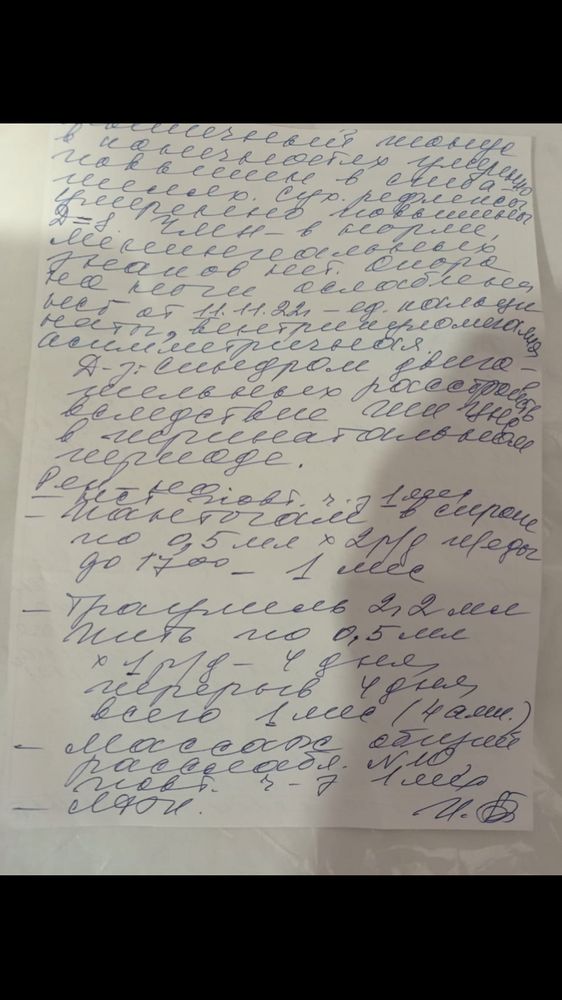 мышечный тонус
в конечностях умеренно
повышен в сгиба-
телях. Сух. рефлексы
умеренно повышены
D=S. ЧМН - в норме,
менингеальных
знаков нет. Опора
на ноги ослаблена
НСГ от 11.11.22г - ед. кальци
наты, вентрикуломегалия
асимметричная.
Д-з: Синдром двига-
тельных расстройств
вследствие ГИП ЦНС
в перинатальном
периоде.
Рек-но:
- НСГ повт. ч-з 1 мес
- Пантогам в сиропе
по 0,5 мл х 2 р/д п/еды
до 17:00 - 1 мес
- Траумель 2,2 мл
пить по 0,5 мл
х 1 р/д - 4 дня,
перерыв 4 дня,
всего 1 мес (4 амп.)
- Массаж общий
расслабл. N10,
повт. ч-з 1 мес
- ЛФК.